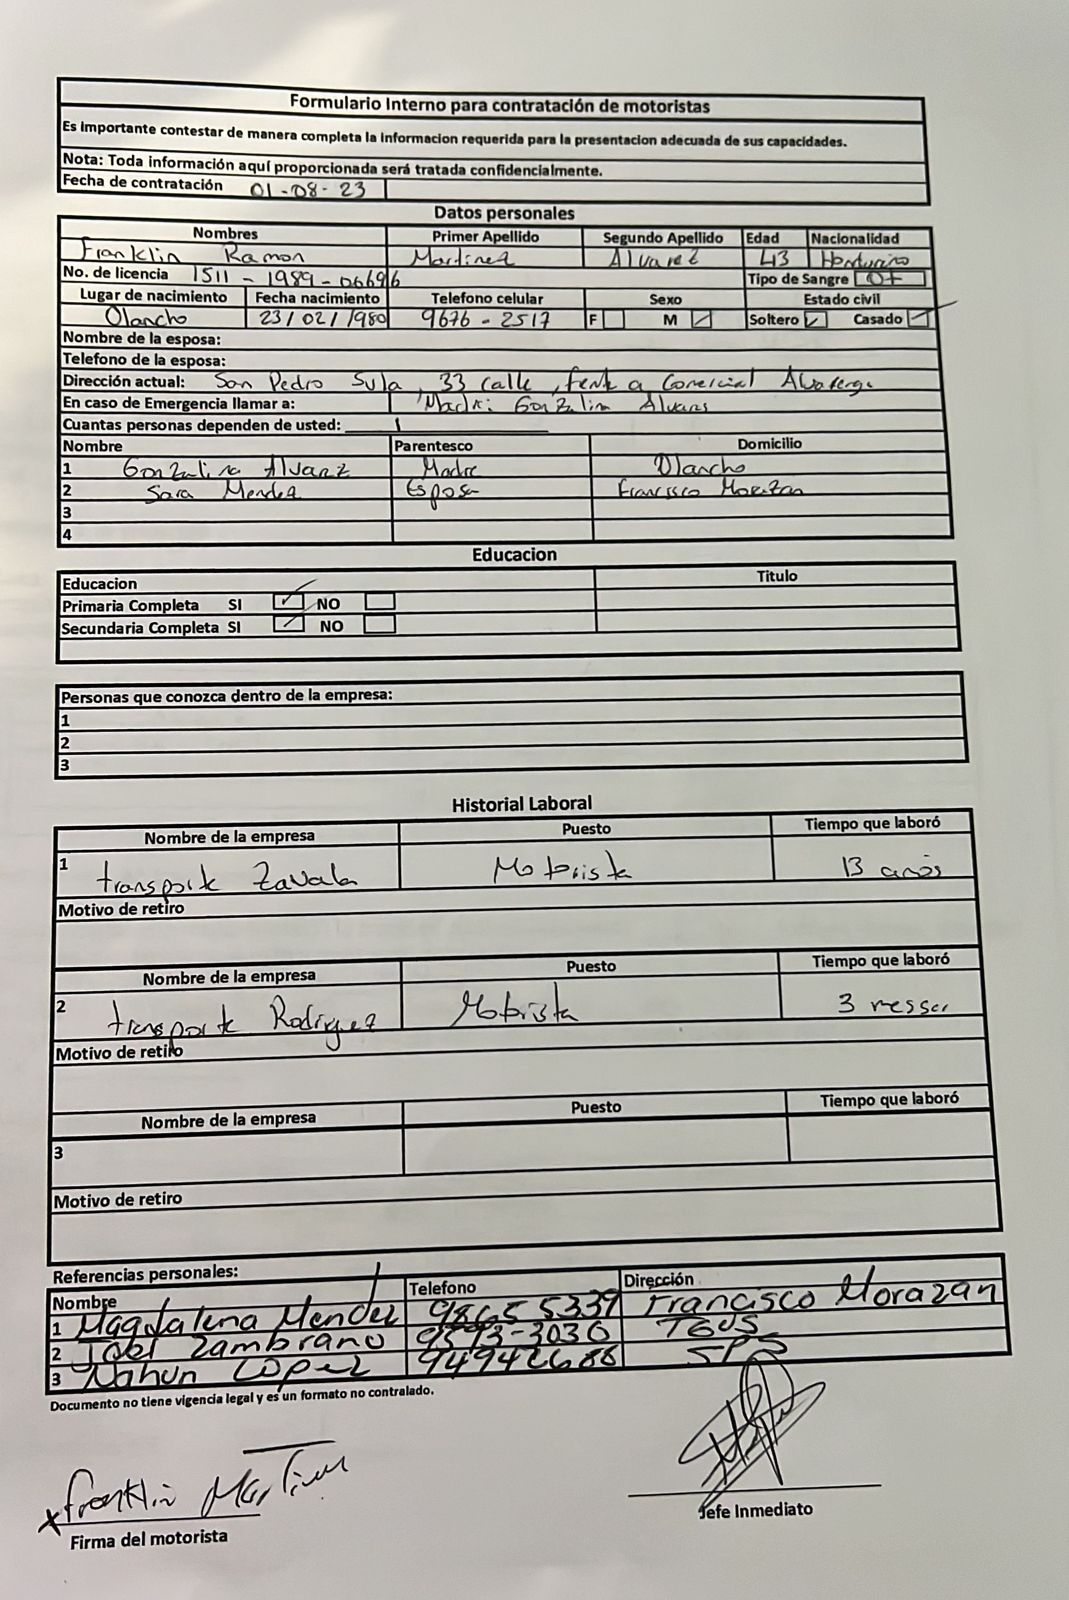 Formulario Interno para contratación de motoristas
Es importante contestar de manera completa la informacion requerida para la presentacion adecuada de sus capacidades.
Nota: Toda información aquí proporcionada será tratada confidencialmente.
Fecha de contratación 01-08-23
Datos personales
Nombres Primer Apellido Segundo Apellido Edad Nacionalidad
Franklin Ramon Martinez Alvarez 43 Hondureño
No. de licencia 1511-1989-06696 Tipo de Sangre O+
Lugar de nacimiento Fecha nacimiento Telefono celular Sexo Estado civil
Olancho 23/02/1980 9676-2517 F M Soltero Casado
Nombre de la esposa:
Telefono de la esposa:
Dirección actual: San Pedro Sula, 33 calle, frente a Comercial
En caso de Emergencia llamar a: Madre: Gonzalina Alvares
Cuantas personas dependen de usted: 1
Nombre Parentesco Domicilio
1 Gonzalina Alvarez Madre Olancho
2 Sara Mendez Esposa Francisco Morazan
3
4
Educacion
Educacion Titulo
Primaria Completa SI NO
Secundaria Completa SI NO
Personas que conozca dentro de la empresa:
1
2
3
Historial Laboral
Nombre de la empresa Puesto Tiempo que laboró
1 transporte Zavala Motorista 13 años
Motivo de retiro
Nombre de la empresa Puesto Tiempo que laboró
2 transporte Rodriguez Motorista 3 messes
Motivo de retiro
Nombre de la empresa Puesto Tiempo que laboró
3
Motivo de retiro
Referencias personales:
Nombre Telefono Dirección
1 Magdalena Mendez 9865 5339 Francisco Morazan
2 Joel Zambrano 9593-3036 TGUS
3 Nahun Lopez 94942688 SPS
Documento no tiene vigencia legal y es un formato no contralado.
x Franklin Martinez
Firma del motorista
Jefe Inmediato